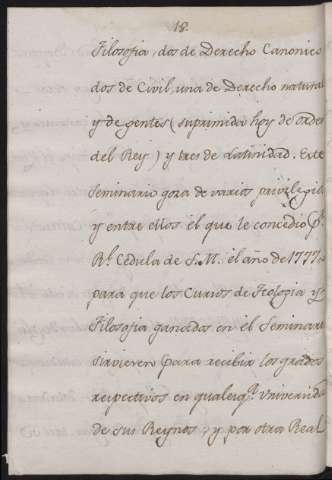 18.
Filosofia, dos de Derecho Canonico
dos de Civil, una de Derecho natural
y de gentes (suprimida hoy de orden
del Rey) y tres de Latinidad. Este
Seminario goza de varios privilegios
y entre ellos el que le concedió p.r
R.l Cedula de S.M. el año de 1777.
para que los Cursos de Teologia y
Filosofia ganados en el Seminario
sirviesen para recibir los grados
respectivos en qualesq.a Universidad
de sus Reynos, y por otra Real